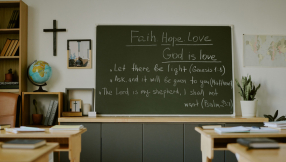 Faith Hope Love
God is love
• Let there be light (Genesis 1:3)
• Ask, and it will be given to you (Matthew
• The Lord is my shepherd, I shall not
want (Psalm 23:1)